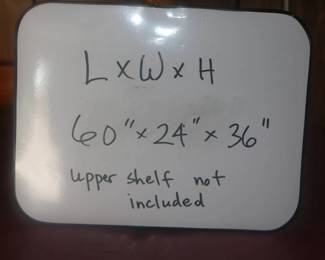 L x W x H
60" x 24" x 36"
upper shelf not
included